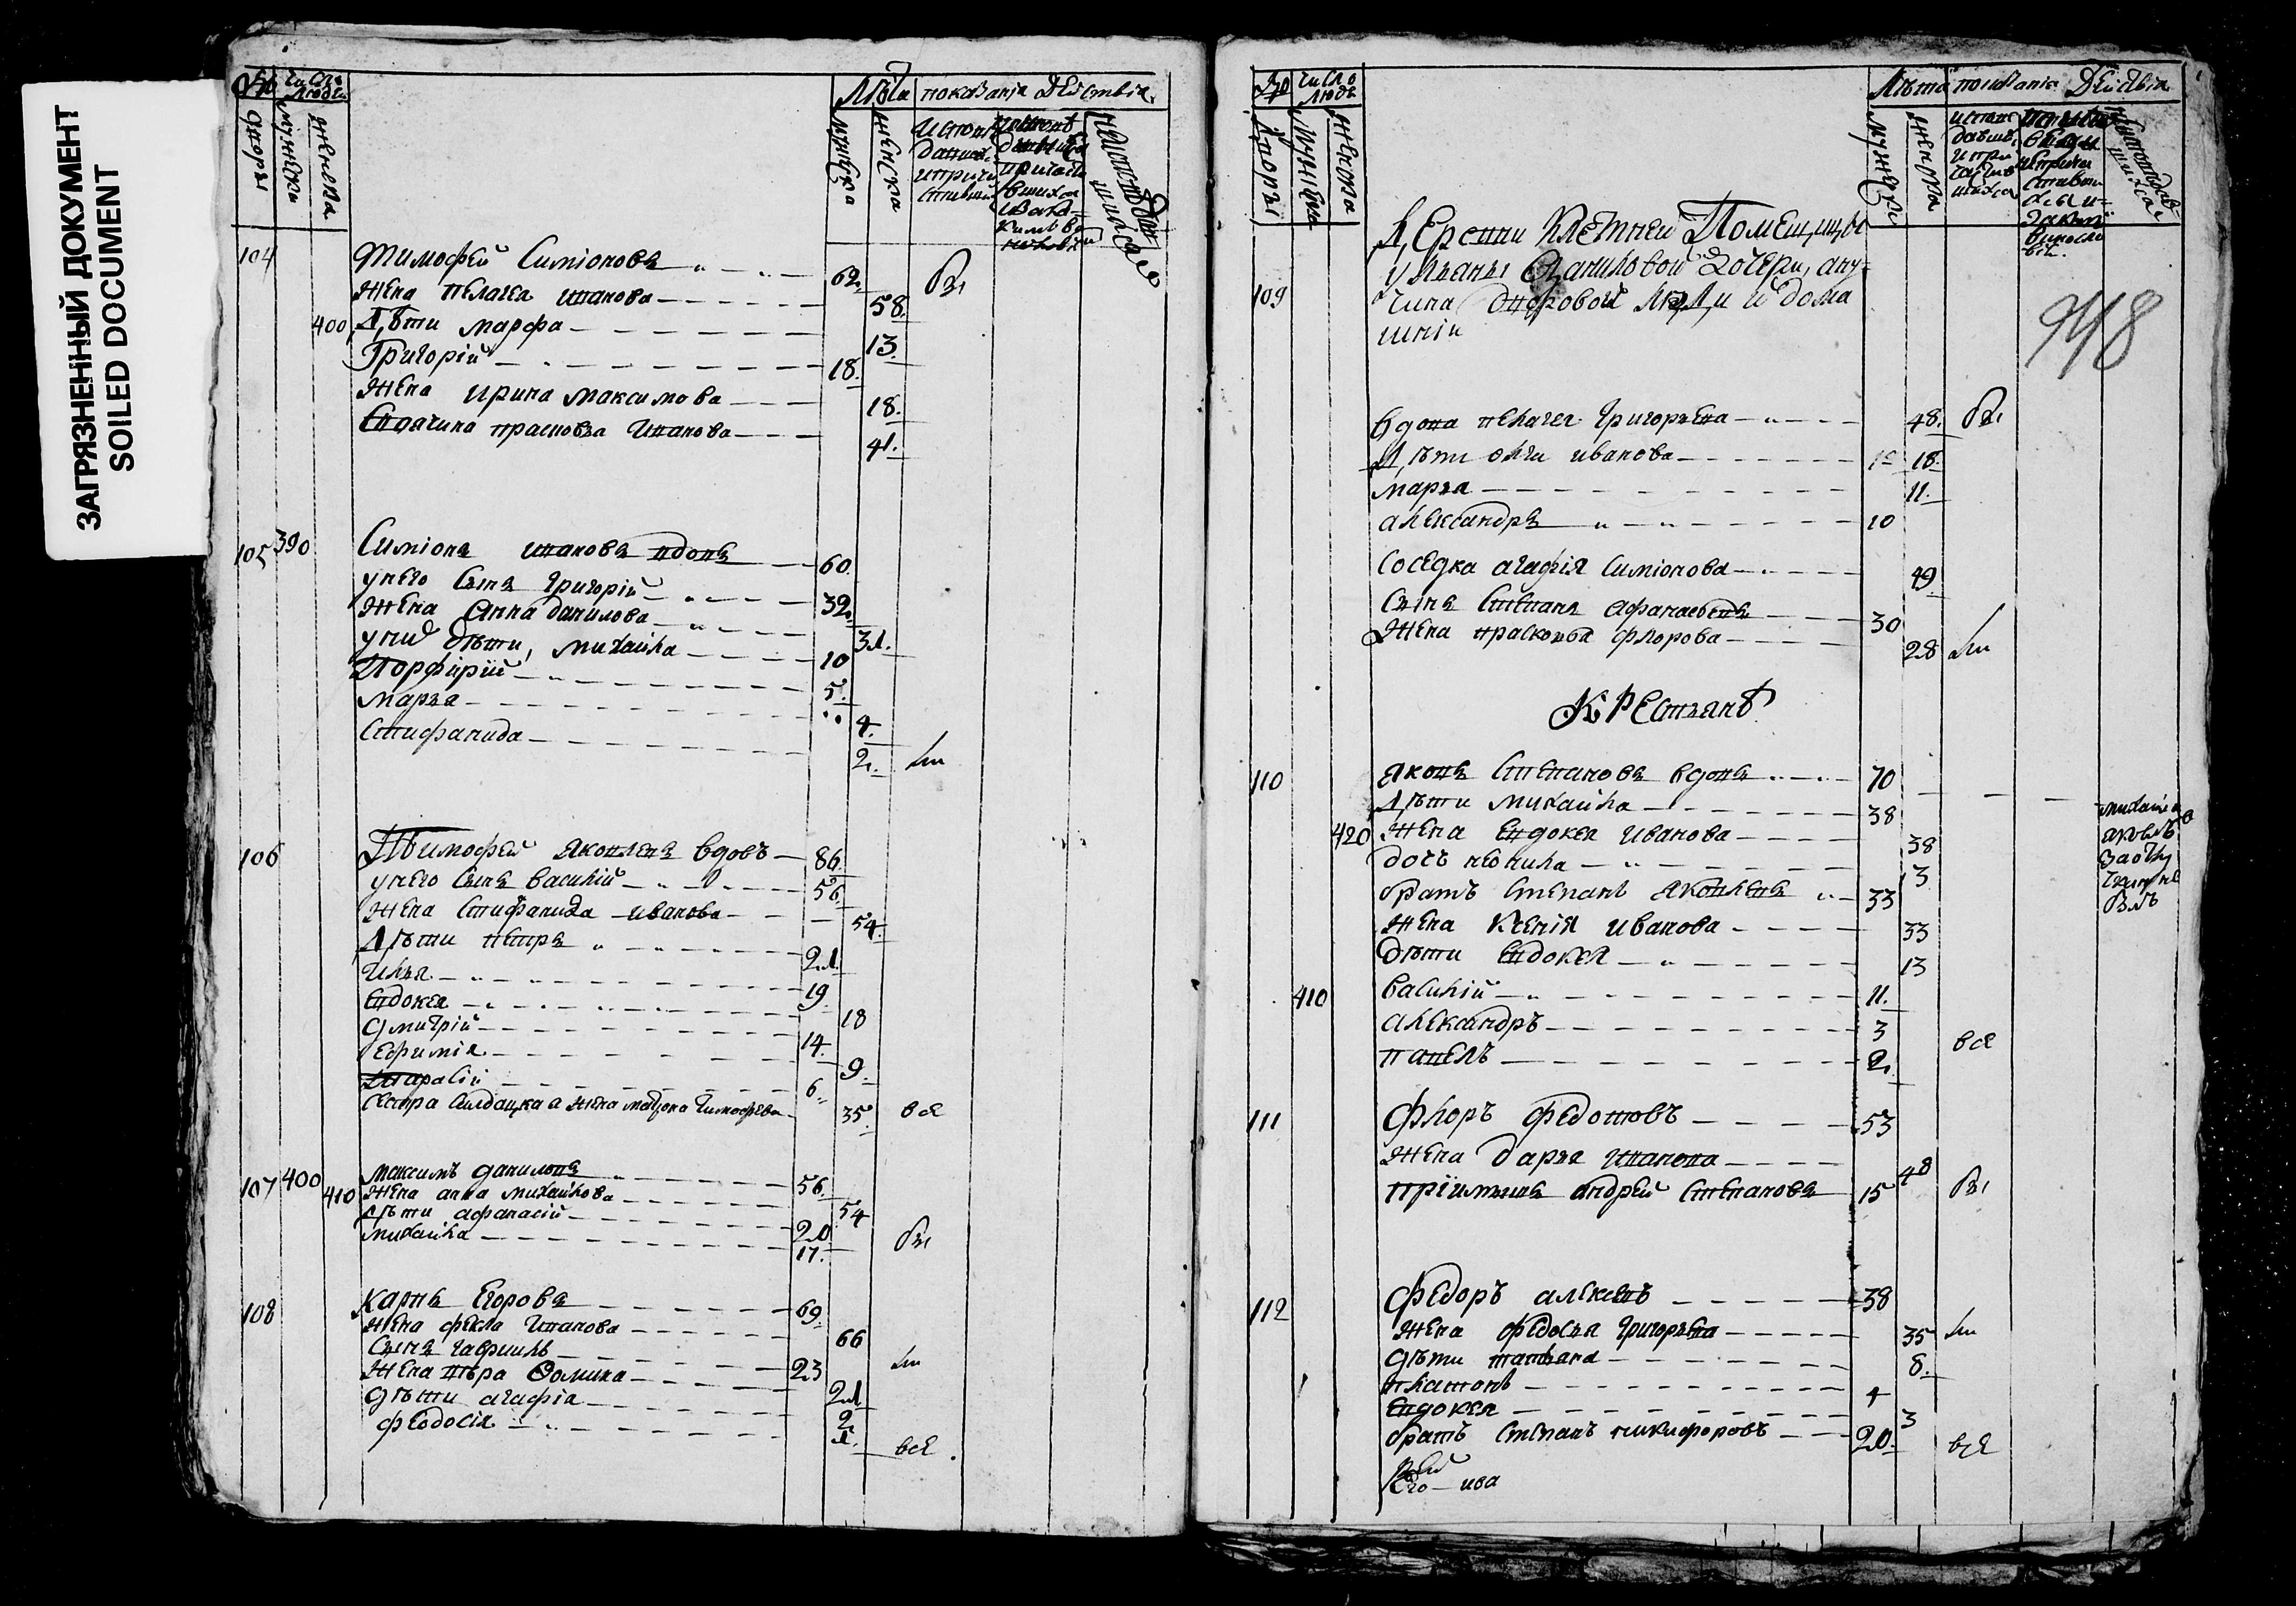 ЗАГРЯЗНЕННЫЙ ДОКУМЕНТ
SOILED DOCUMENT
№ число людей Лѣта показанiя Действiа
дворы мужеска женска мужеска женска
104 Тимофей Симiоновъ 62 бы
Жена пелагея иванова 58
400 Дѣти марфа 13
Григорiй 18
Жена ирина максимова 18
прасковья Иванова 41
105 390 Симiонъ ивановъ вдовъ 60
у него Сынъ Григорiй 32
Жена Анна данилова 31
у них дѣти, михаила 10
Порфирiй 5
марья 4
Стифанида 2
106 Тимофей яковлевъ вдовъ 86
у него Сынъ василiй 56
Жена Стифанида иванова 54
Дѣти петръ 21
илья 19
Евдокея 18
дмитрiй 14
Ефимiя 9
Тарасiй 6
сестра Салдацкая жена матрона тимофева 35 всѣ
107 400 максимъ данилов 56
410 жена анна михайлова 54
Дѣти афанасiй 20
михаила 17 бы
108 Карпъ Егоровъ 69
Жена фекла Иванова 66
Сынъ гаврiилъ 23
Жена Фомина 21
дѣти агафiя 2
феодосiя 1 всѣ
№ число людей Лѣта показанiя Дейстьвiя
дворы мужеска женска мужеска женска
948
Деревни Клетней Помещицы
109 ульяны Даниловой дочери,
дворовои люди и дома
шнiи
Вдова пелагея Григорьева 48 бы
Дѣти иванова 18
марья 11
александръ 10
Соседка агафiя Симiонова 49
Сынъ Степанъ Афанасьевъ 30
Жена прасковья флорова 28
Крестьянѣ
110 яковъ Степановъ вдовъ 70
Дѣти михаила 38
420 Жена Евдокея иванова 38
дочь неонила 3
братъ степанъ яковлевъ 33
Жена Ксенiя иванова 33
дѣти Евдокея 13
410 василiй 11
александръ 3
павелъ 2 всѣ
111 Флоръ федотовъ 53
Жена дарья иванова 48
прiимышъ андрей Степановъ 15 бы
112 Федоръ 38
Жена федосья Григорьева 35
дѣти татьяна 8
платонъ 4
Евдокея 3
братъ степанъ никифоровъ 20 всѣ